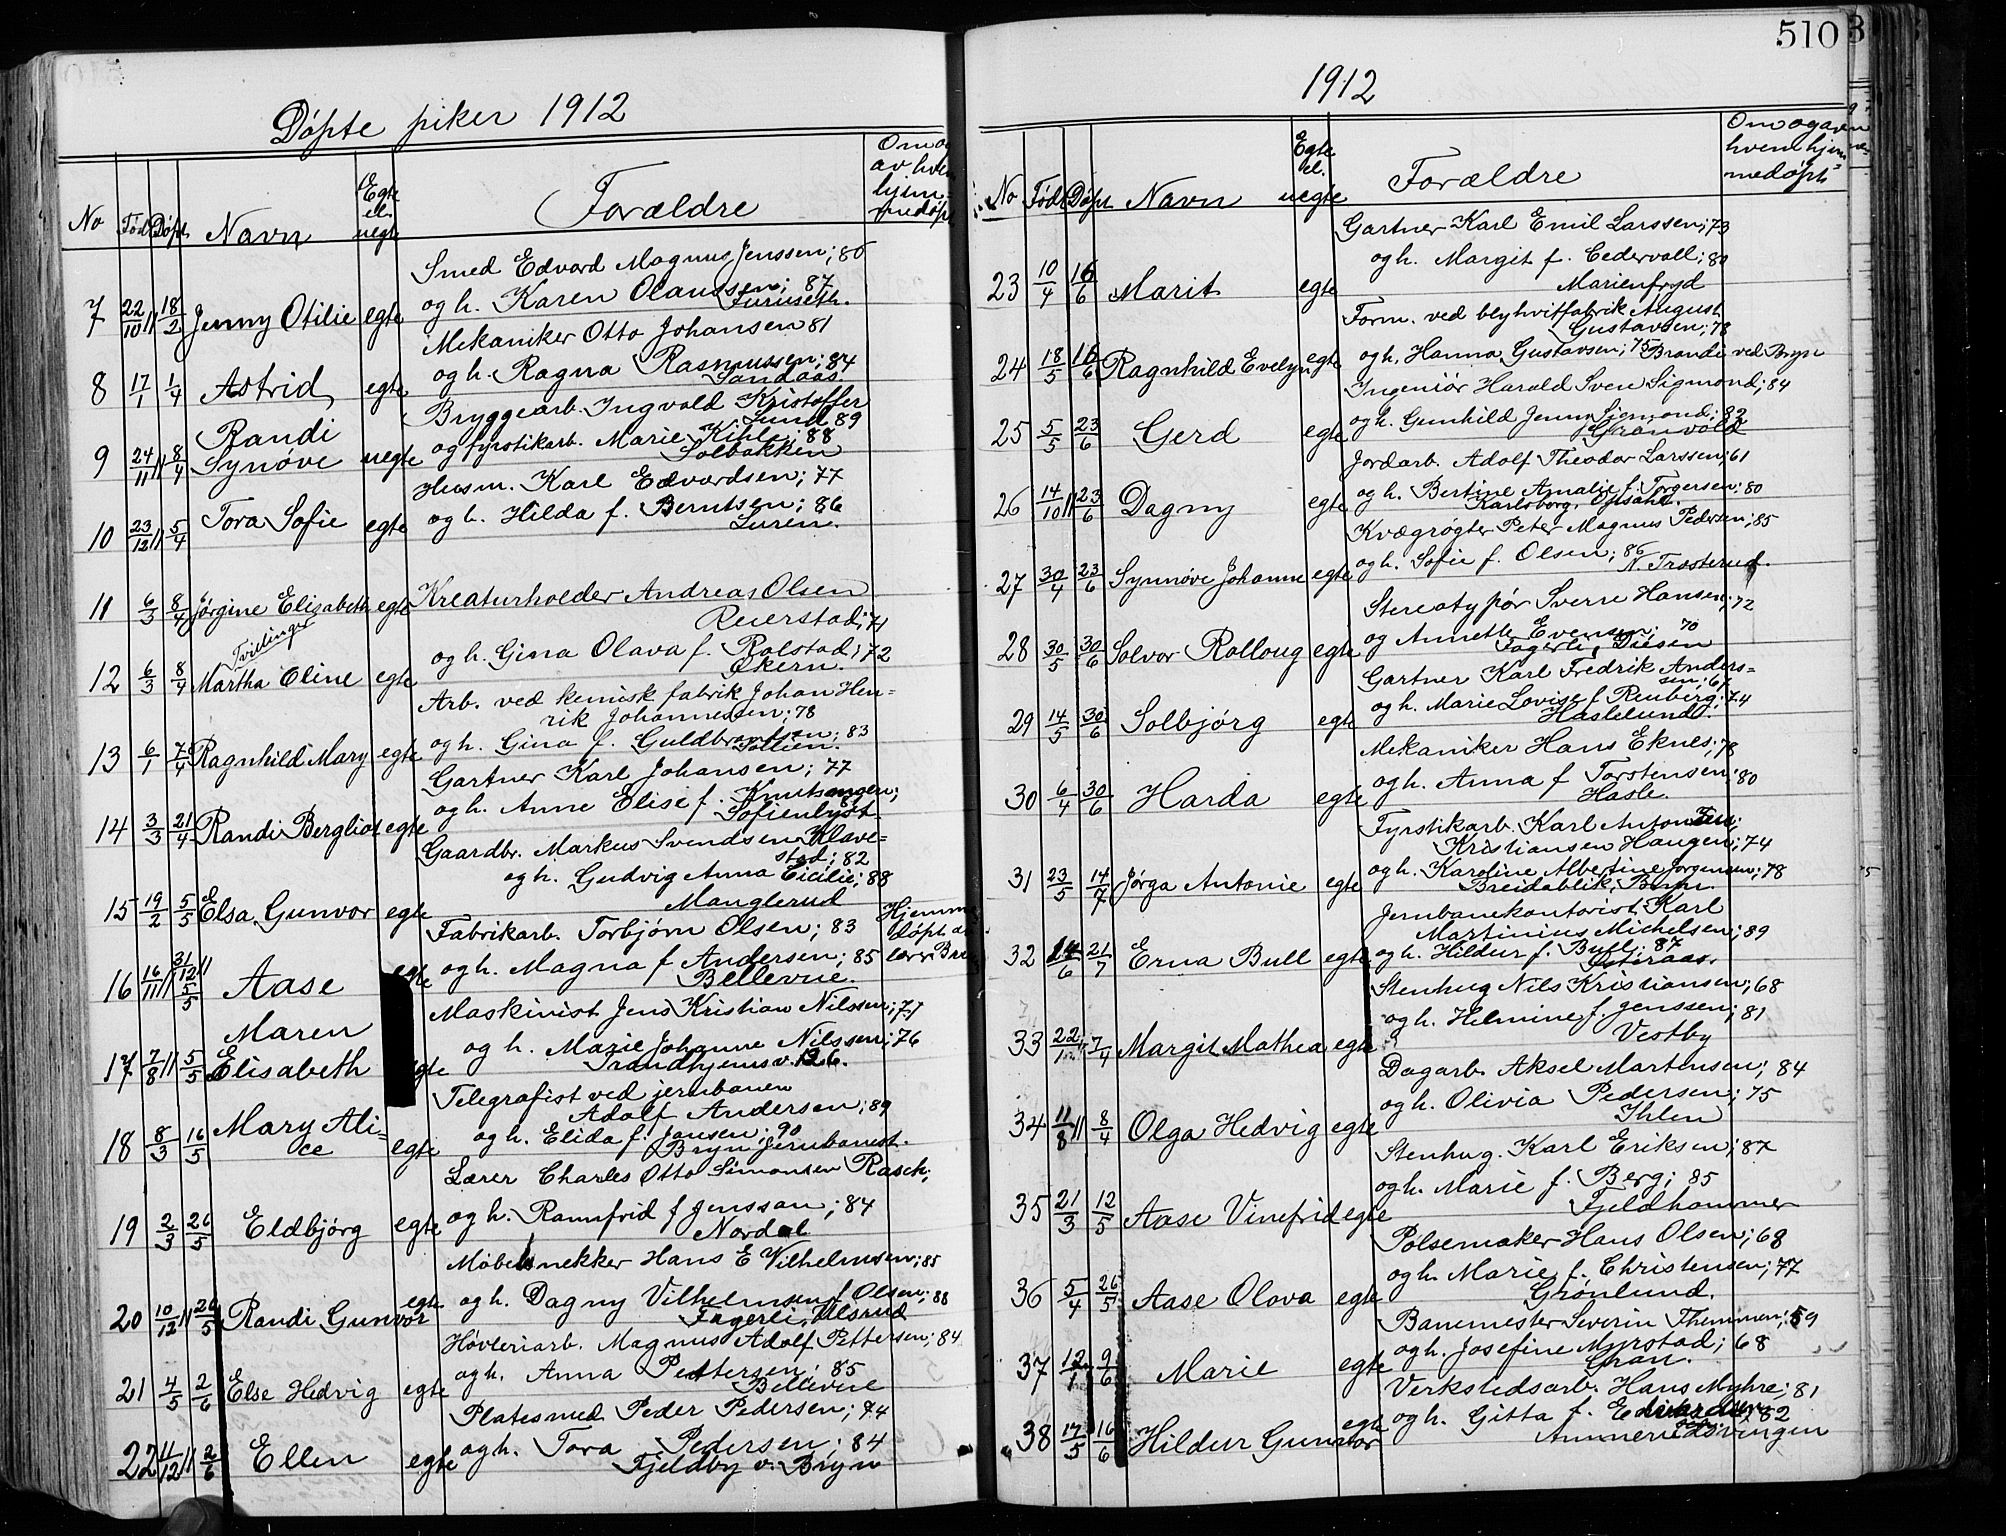 510
Døpte piker 1912
No Født Døpt Navn Egte el. uegte Forældre
7 22/10 11 18/2 Jenny Otilie egte Smed Edvard Magnus Jenssen; 86
og h. Karen Olaussen; 87
Furuseth.
8 17/1 1/4 Astrid egte Mekaniker Otto Johansen 81
og h. Ragna Rasmussen; 84
Sandaas.
9 24/11 11 8/4 Randi Synøve uegte Bryggearb. Ingvald Kristoffer
Lund 89
og fyrstikarb. Marie Kihle; 88
Solbakken
10 23/12 11 5/4 Tora Sofie egte Husm. Karl Edvardsen; 77
og h. Hilda f. Berntsen; 86
Luren.
11 6/3 8/4 Jørgine Elisabeth egte Kreaturholder Andreas Olsen
Reierstad; 71
Tvillinger
12 6/3 8/4 Martha Oline egte og h. Gina Olava f. Rolstad; 72
Økern.
13 6/1 7/4 Ragnhild Mary egte Arb. ved kemisk fabrik Johan Hen=
rik Johannessen; 78
og h. Gina f. Guldbrantsen; 83
Sollien.
14 3/3 21/4 Randi Bergliot egte Gartner Karl Johansen; 77
og h. Anne Elise f. Knutsengen;
Sofienlyst.
15 19/2 5/5 Elsa Gunvor egte Gaardbr. Markus Svendsen Klave=
stad; 82
og h. Gudvig Anna Cicilie; 88
Manglerud
16 16/11 11 31/12 11 5/5 Aase egte Fabrikarb. Torbjørn Olsen; 83 Hjemme
døpt av
og h. Magna f Andersen; 85
Bellevue.
17 7/8 11 5/5 Maren Elisabeth egte Maskinist Jens Kristian Nilssen; 71
og h. Marie Johanne Nilssen; 76
Trondhjemsv. 126.
18 8/3 16/5 Mary Ali=
ce egte Telegrafist ved jernbanen
Adolf Andersen; 89
og h. Elida f. Jansen; 90
Bryn jernbanest.
19 2/3 26/5 Eldbjørg egte Lærer Charles Otto Simonsen Rasch;
og h. Ramfrid f Jenssen; 84
Nordal
20 10/12 11 26/5 Randi Gunvor egte Møbelsnekker Hans E Vilhelmsen; 85
og h. Dagny Vilhelmsen f Olsen; 88
Fagerli, Ulsrud
21 4/5 2/6 Else Hedvig egte Høvleriarb. Magnus Adolf Pettersen; 84
og h. Anna Pettersen; 85
Bellevue
22 11/12 11 2/6 Ellen egte Platesmed Peder Pedersen; 74
og h. Tora Pedersen; 84
Fjeldby v. Bryn
1912
No Født Døpt Navn Egte el. uegte Forældre
23 10/4 16/6 Marit egte Gartner Karl Emil Larssen; 73
og h. Margit f. Cedervall; 80
Marienfryd
24 18/5 16/6 Ragnhild Evelyn egte Form. ved blyhvitfabrik August
Gustavsen; 78
og h. Hanna Gustavsen; 75 Brandi ved Bryn
25 5/5 23/6 Gerd egte Ingeniør Harald Sven Sigmond; 84
og h. Gunhild Jenny Sigmond; 82
Grønvold
26 14/10 11 23/6 Dagny egte Jordarb. Adolf Theodor Larssen; 61
og h. Bertine Amalie f. Torgersen; 80
Karlsborg, Opsahl.
27 30/4 23/6 Synnøve Johanne egte Kvægrøgter Peter Magnus Pedersen; 85
og h. Sofie f. Olsen; 86
N. Trosterud.
28 30/5 30/6 Solvor Rolloug egte Stereotypør Sverre Hansen; 72
og Annette Evensen; 70
Fagerli, Disen
29 14/5 30/6 Solbjørg egte Gartner Karl Fredrik Anders=
sen; 67
og h. Marie Lovise f. Renberg; 74
Haslelund.
30 6/4 30/6 Harda egte Mekaniker Hans Eknes; 78
og h. Anna f Torstensen; 80
Hasle.
31 23/5 14/7 Jørga Antonie egte Fyrstikarb. Karl Anton
Kristiansen Haugen; 74
og h. Karoline Albertine Jørgensen; 78
Breidablik, Bryn.
32 14/6 21/7 Erna Bull egte Jernbanekontorist Karl
Martinius Michelsen; 89
og h. Hildur f. Bull; 87
33 22/1 7/4 Margit Mathea egte Stenhug Nils Kristiansen; 68
og h. Helmine f. Jenssen; 81
Vestby
34 11/8 11 8/4 Olga Hedvig egte Dagarb. Aksel Martensen; 84
og h. Olivia Pedersen; 75
Ihlen
35 21/3 12/5 Aase Vinefrid egte Stenhug. Karl Eriksen; 87
og h. Marie f. Berg; 85
Fjeldhammer
36 5/4 26/5 Aase Olova egte Pølsemaker Hans Olsen; 68
og h. Marie f. Christensen; 77
Grønlund.
37 12/1 9/6 Marie egte Banemester Severin Themmen; 59
og h. Josefine Myrstad; 68
Gran.
38 17/5 16/6 Hildur Gunvor egte Verkstedsarb. Hans Myhre; 81
og h. Gitta f. Edvardsen; 82
Ammerudsvingen